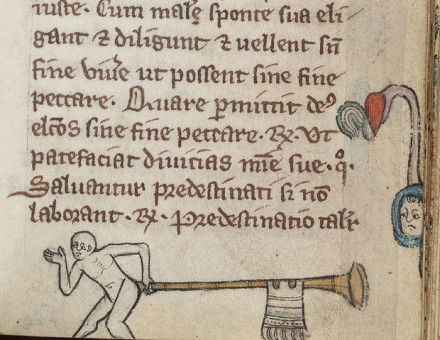 iuste. Cum male sponte sua eli-
gant ⁊ diligunt ⁊ uellent sn̄
fine viu̾e ut possent sine fine
peccare. Quare ꝑmittit deꝰ
elc̄os sine fine peccare. ℞. Vt
patefaciat diuicias mīe sue. qͣ.
Saluantur predestinati si nō
laborant. ℞. Predestinatio talr̄